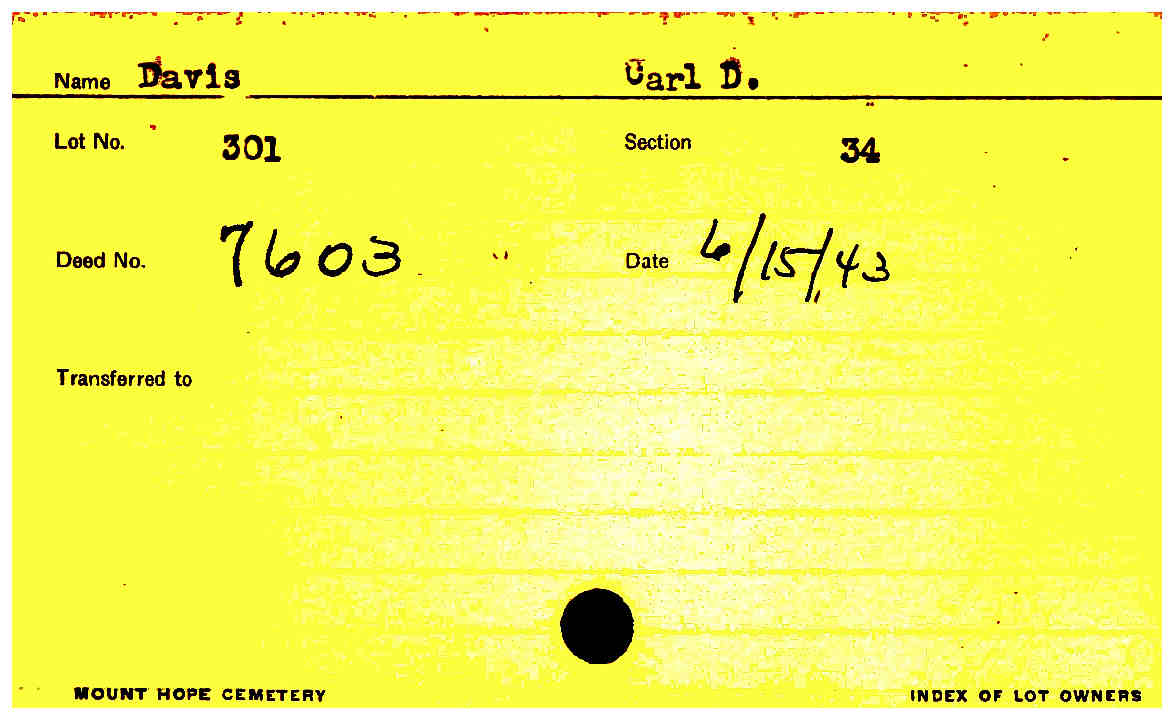 Name Davis Carl D.
Lot No. 301 Section 34
Deed No. 7603 Date 6/15/43
Transferred to
MOUNT HOPE CEMETERY INDEX OF LOT OWNERS